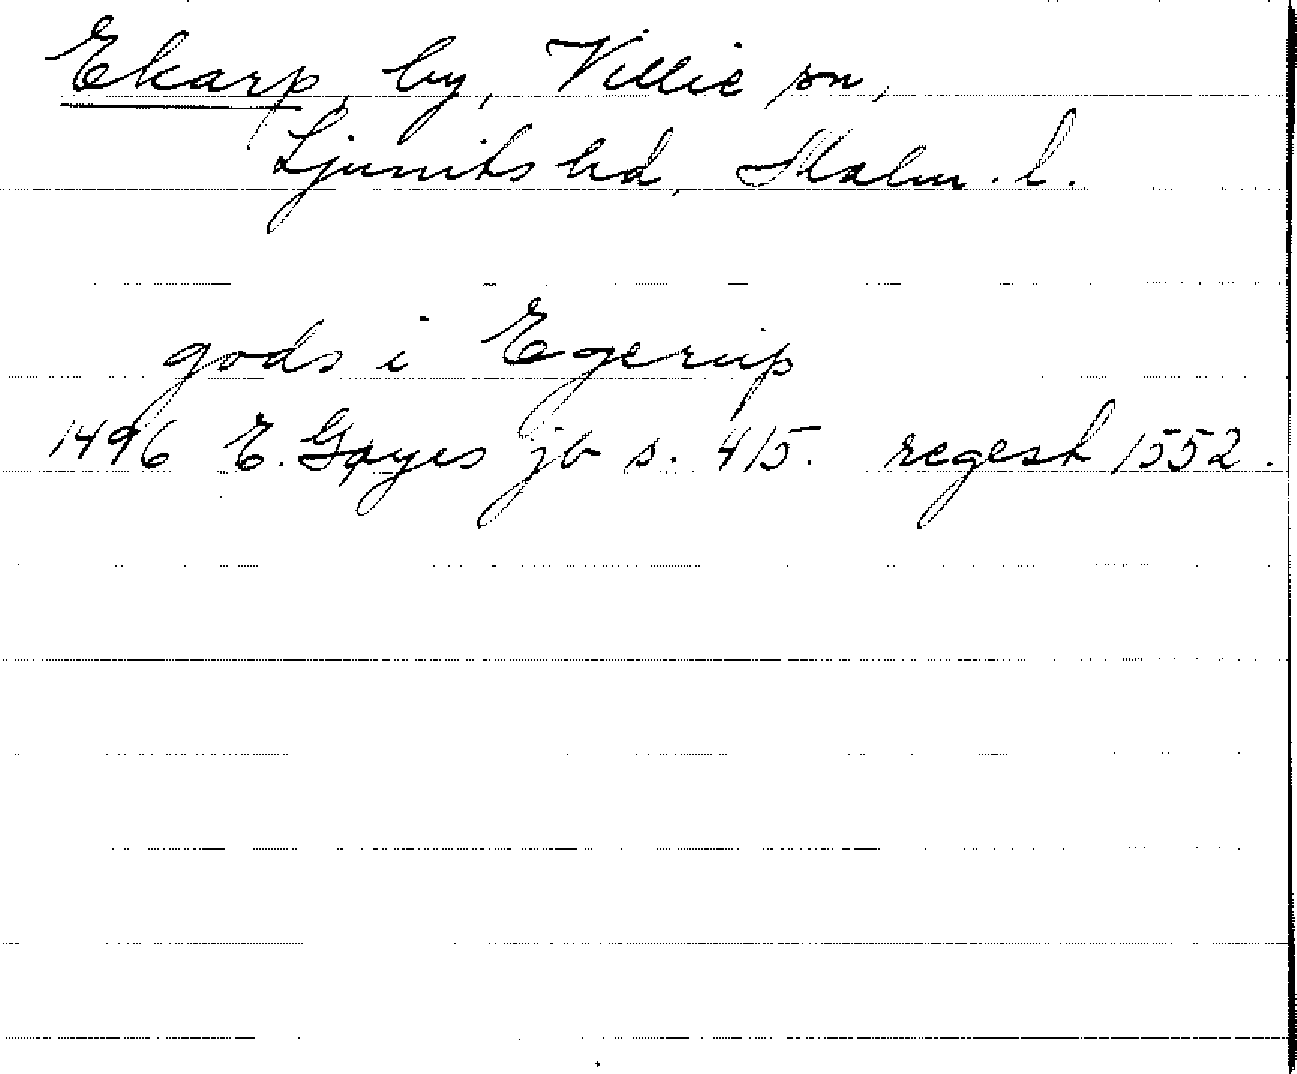 Ekarp, by, Villie sn,
Ljunits hd, Malm. l.
gods i Egerup
1496 E. Gøyes jb s. 415. regest 1552.